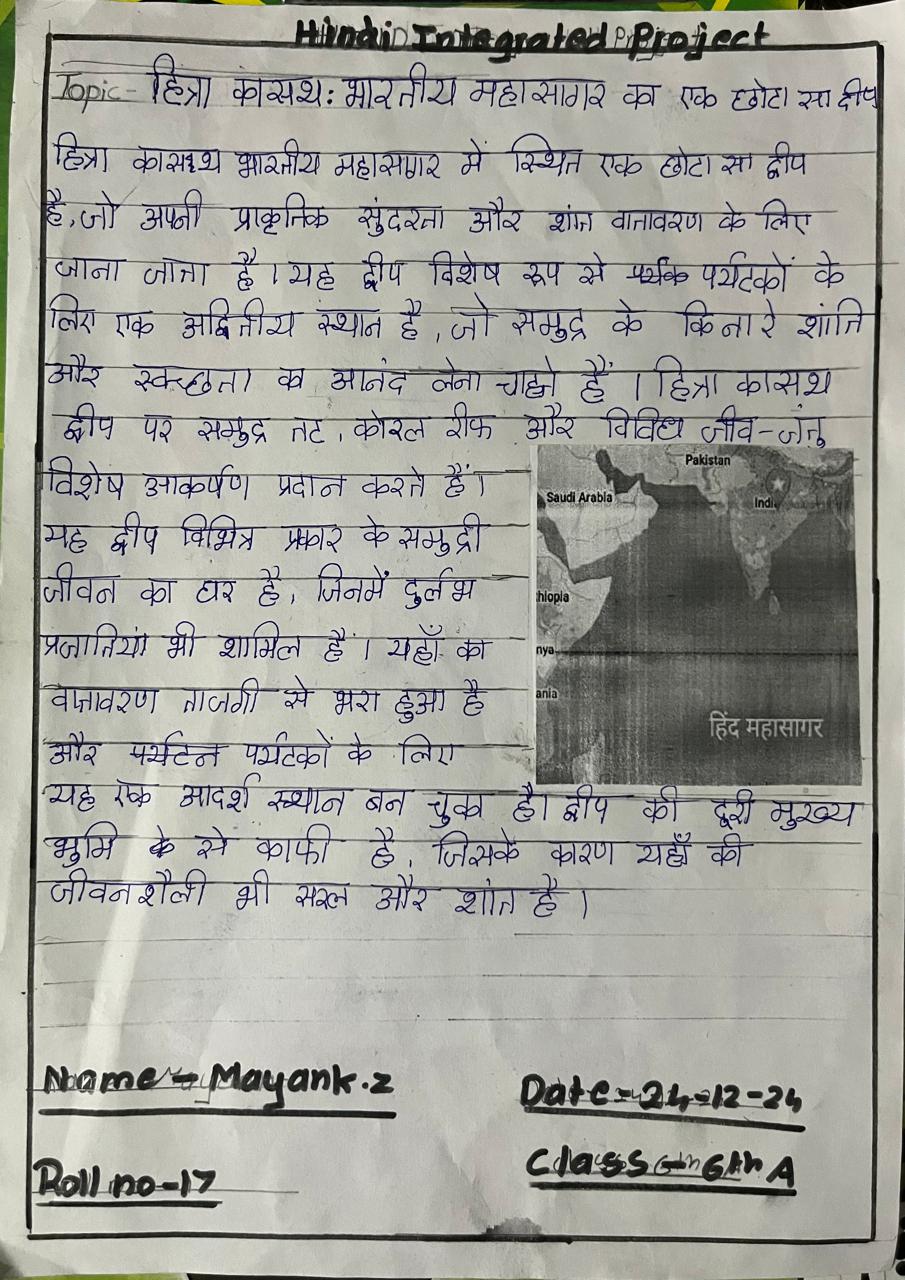 Hindi Integrated Project
Topic - हित्रा कासथ: भारतीय महासागर का एक छोटा सा द्वीप
हित्रा कासथ भारतीय महासागर में स्थित एक छोटा सा द्वीप
है, जो अपनी प्राकृतिक सुंदरता और शांत वातावरण के लिए
जाना जाता है। यह द्वीप विशेष रूप से पर्यटकों के
लिए एक अद्वितीय स्थान है, जो समुद्र के किनारे शांति
और स्वच्छता का आनंद लेना चाहते हैं । हित्रा कासथ
द्वीप पर समुद्र तट, कोरल रीफ और विविध जीव-जंतु
विशेष आकर्षण प्रदान करते हैं।
यह द्वीप विभिन्न प्रकार के समुद्री
जीवन का घर है, जिनमें दुर्लभ
प्रजातियां भी शामिल हैं । यहाँ का
वातावरण ताजगी से भरा हुआ है
और पर्यटन पर्यटकों के लिए
यह एक आदर्श स्थान बन चुका है। द्वीप की दूरी मुख्य
भूमि के से काफी है, जिसके कारण यहाँ की
जीवनशैली भी सरल और शांत है ।
Pakistan
Saudi Arabia
India
hiopia
nya
ania
हिंद महासागर
Name - Mayank.Z
Date - 24-12-24
Roll no-17
Class - 6th A